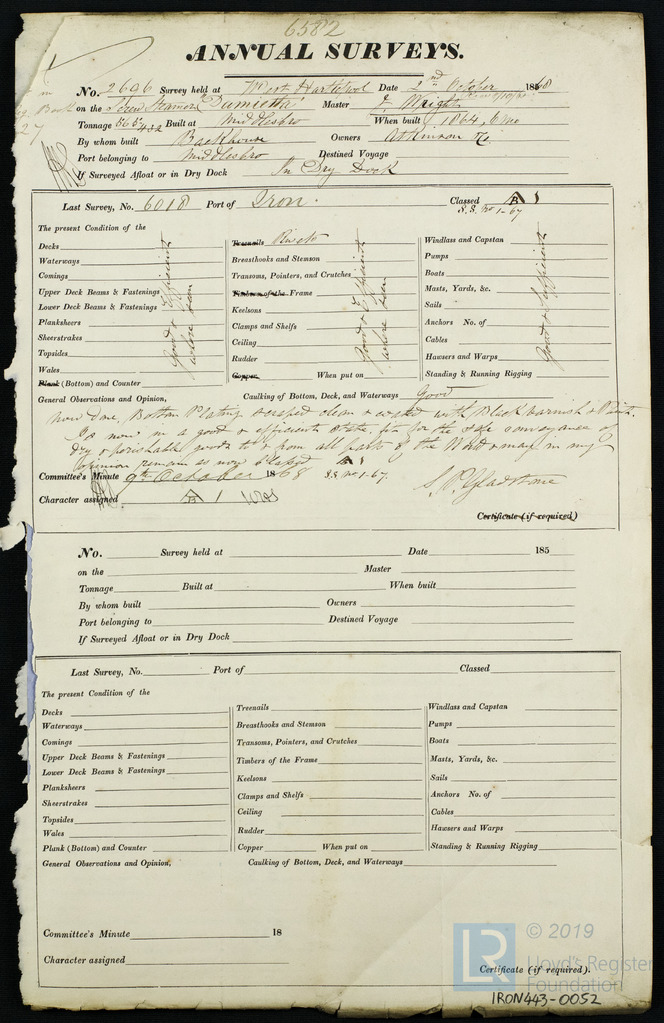 6582
ANNUAL SURVEYS.
No. 2606 Survey held at West Hartlepool Date 2nd October 1868
on the Screw Steamer "Damietta" Master J. Wright
Tonnage 565/432 Built at Middlesbro When built 1864, 6 mo
By whom built Backhouse Owners Atkinson & Co
Port belonging to Middlesbro Destined Voyage
If Surveyed Afloat or in Dry Dock In Dry Dock
Last Survey, No. 6018 Port of Iron. Classed A B 1
S.S. No 1-67
The present Condition of the
Decks
Waterways
Comings
Upper Deck Beams & Fastenings
Lower Deck Beams & Fastenings
Planksheers
Sheerstrakes
Topsides
Wales
Plank (Bottom) and Counter
Good & Efficient where seen
Treenails Rivets
Breasthooks and Stemson
Transoms, Pointers, and Crutches
Timbers of the Frame
Keelsons
Clamps and Shelfs
Ceiling
Rudder
Copper When put on
Good & Efficient where seen
Windlass and Capstan
Pumps
Boats
Masts, Yards, &c.
Sails
Anchors No. of
Cables
Hawsers and Warps
Standing & Running Rigging
Good & Efficient
General Observations and Opinion, Caulking of Bottom, Deck, and Waterways Good
Now done, Bottom Plating scraped clean & coated with Black varnish & Paint.
Is now in a good & efficient state, fit for the safe conveyance of
dry & perishable goods to & from all parts of the World & may in my
opinion remain as now classed A B 1
S.S. No 1-67.
Committee's Minute 9th October 1868
Character assigned A B 1
Certificate (if required)
No. Survey held at Date 185
on the Master
Tonnage Built at When built
By whom built Owners
Port belonging to Destined Voyage
If Surveyed Afloat or in Dry Dock
Last Survey, No. Port of Classed
The present Condition of the
Decks
Waterways
Comings
Upper Deck Beams & Fastenings
Lower Deck Beams & Fastenings
Planksheers
Sheerstrakes
Topsides
Wales
Plank (Bottom) and Counter
Treenails
Breasthooks and Stemson
Transoms, Pointers, and Crutches
Timbers of the Frame
Keelsons
Clamps and Shelfs
Ceiling
Rudder
Copper When put on
Windlass and Capstan
Pumps
Boats
Masts, Yards, &c.
Sails
Anchors No. of
Cables
Hawsers and Warps
Standing & Running Rigging
General Observations and Opinion, Caulking of Bottom, Deck, and Waterways
Committee's Minute 18
Character assigned
Certificate (if required).
LR © 2019
Lloyd's Register
Foundation
IRON443-0052